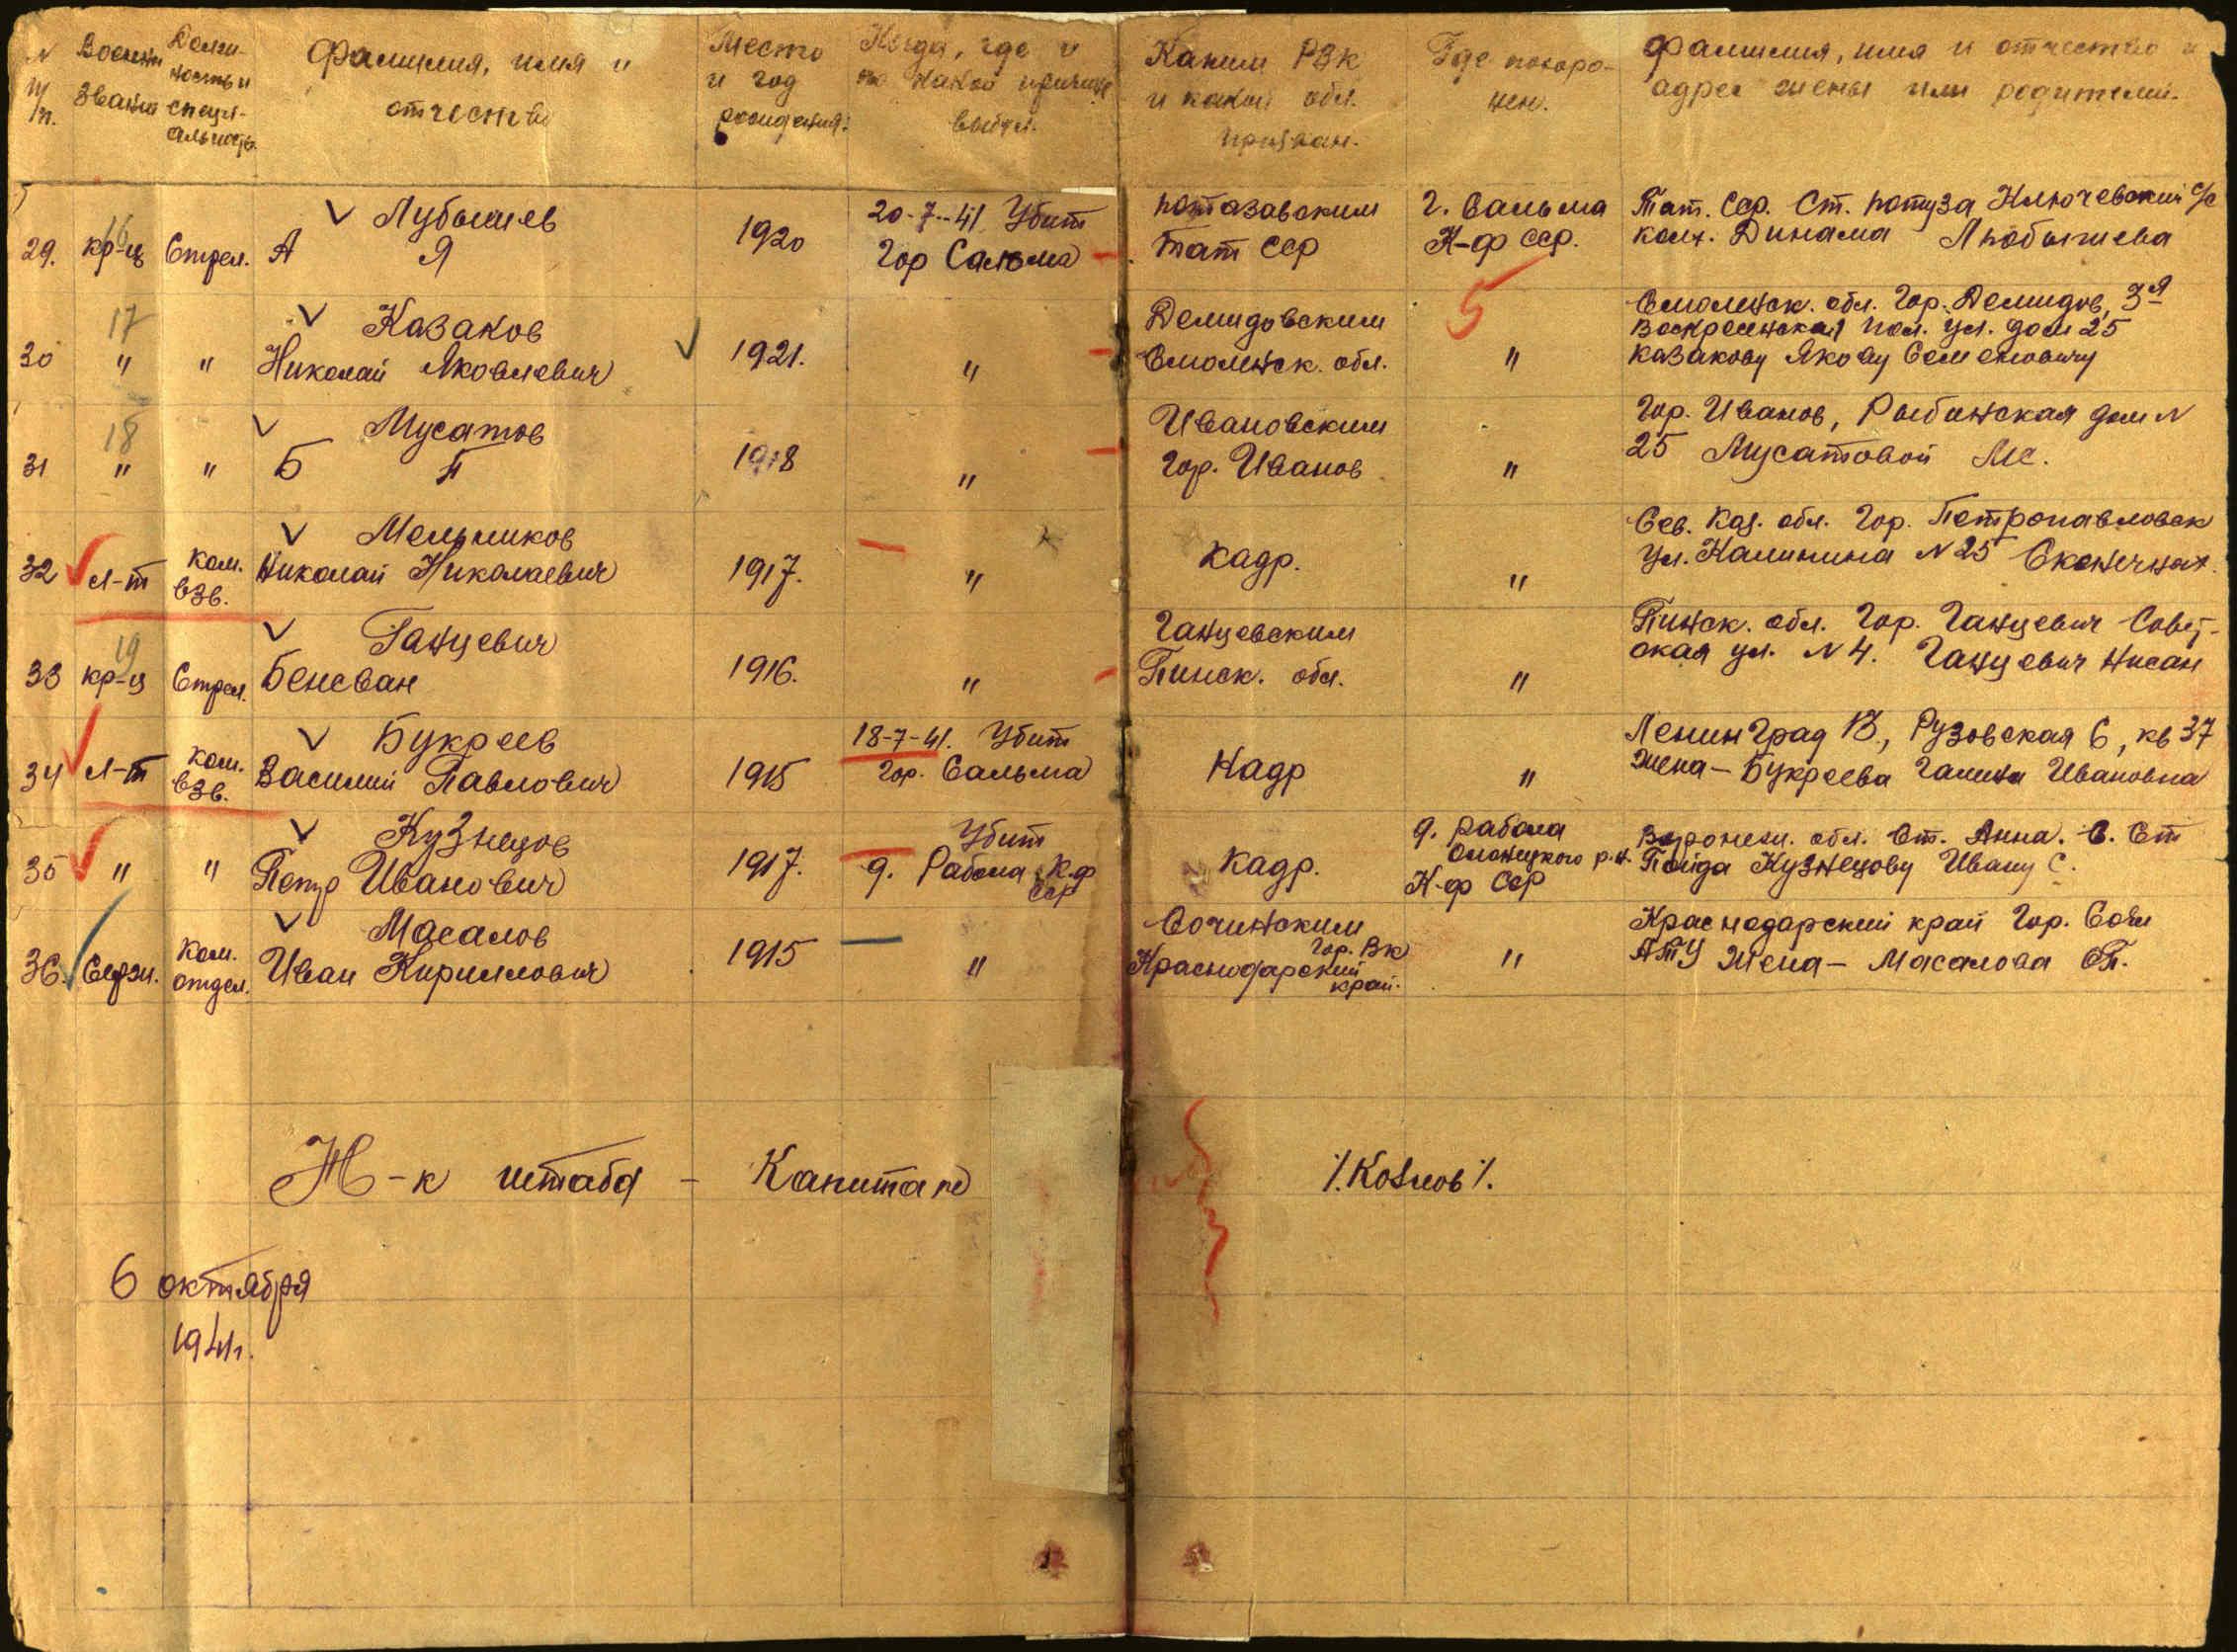 N п/п. Военн звание Должность и специальность Фамилия, имя и отчество Место и год рождения: Когда, где и по какой причине выбыл. Каким РВК и какой обл. призван. Где похоронен. Фамилия, имя и отчество и адрес жены или родителей.
16
29. кр-ц Стрел. Лубышев А Я 1920 20-7-41 Убит Гор Сальма потазавским Тат ССР г. Сальма К-ф ССР. Тат. ССР. Ст. потуза Ключевский с/с колх. Динама Любышева
17
30 " " Казаков Николай Яковлевич 1921. " Демидовским Смоленск. обл. " Смоленск. обл. Гор. Демидов, 3я Воскресенская пол. ул. дом 25 Казакову Якову Семеновичу
5
18
31 " " Мусатов Б П 1918 " Ивановским гор. Иванов " Гор. Иванов, Рыбинская дом N 25 Мусатовой М.
32 л-т ком. взв. Мельников Николай Николаевич 1917. " Кадр. " Сев. Каз. обл. Гор. Петропавловск ул. Калинина N 25
19
33 кр-ц Стрел. Ганцевич Бенсван 1916. " Ганцевским Пинск. обл. " Пинск. обл. Гор. Ганцевич Советская ул. N 4. Ганцевич Нисан
34 л-т ком. взв. Букреев Василий Павлович 1915 18-7-41. Убит Гор. Сальма Кадр " Ленинград 13, Рузовская 6, кв 37 жена - Букреева Галина Ивановна
35 " " Кузнецов Петр Иванович 1917. Убит д. Рабола К.ф ССР Кадр. д. Рабола Олонецкого р.н. К-ф ССР Воронеж. обл. Ст. Анна. С. Ст Кузнецову Ивану С.
36. Серж. Ком. отдел. Масалов Иван Кириллович 1915 " Сочинским Гор. ВК Краснодарский край. " Краснодарский край Гор. Сочи АТУ Жена - Масалова
Н-к штаба - Капитан /.Козлов/.
6 октября
1941г.